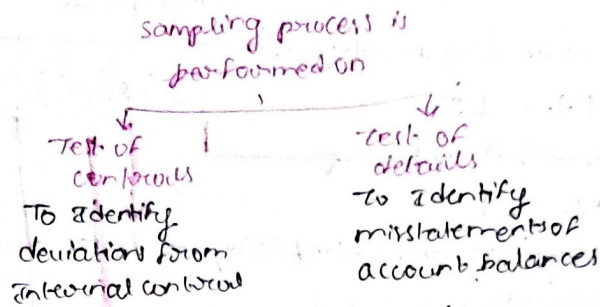 sampling process is
performed on
Test of
controls
To identify
deviation from
internal control
test of
details
to identify
misstatements of
account balances